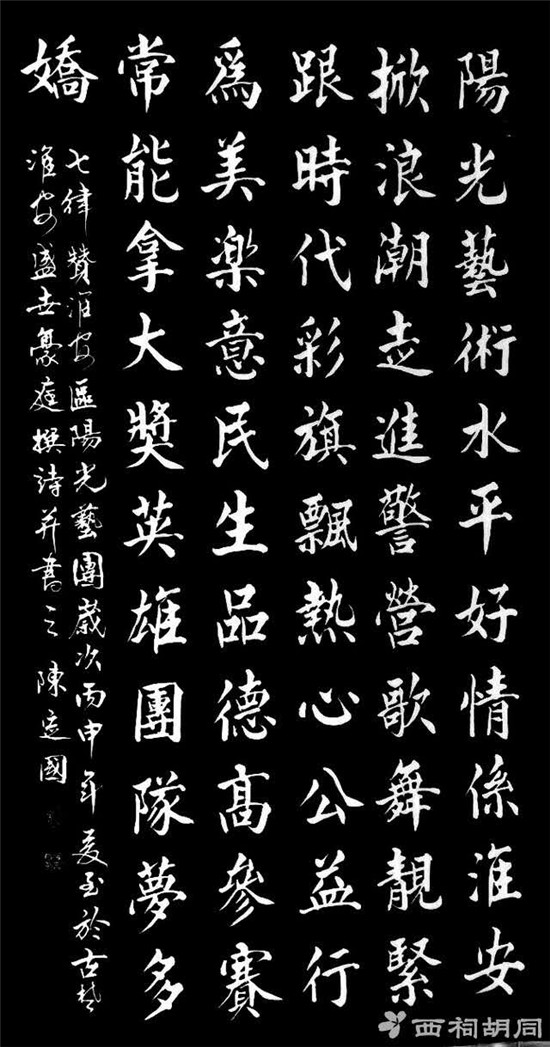 陽光藝術水平好情係淮安
掀浪潮走進警營歌舞靚緊
跟時代彩旗飄熱心公益行
為美楽意民生品德高參賽
常能拿大獎英雄團隊夢多
嬌
七律贊淮安區陽光藝團歲次丙申年夏至於古楚
淮安盛世豪庭撰詩并書之陳定國
西祠胡同